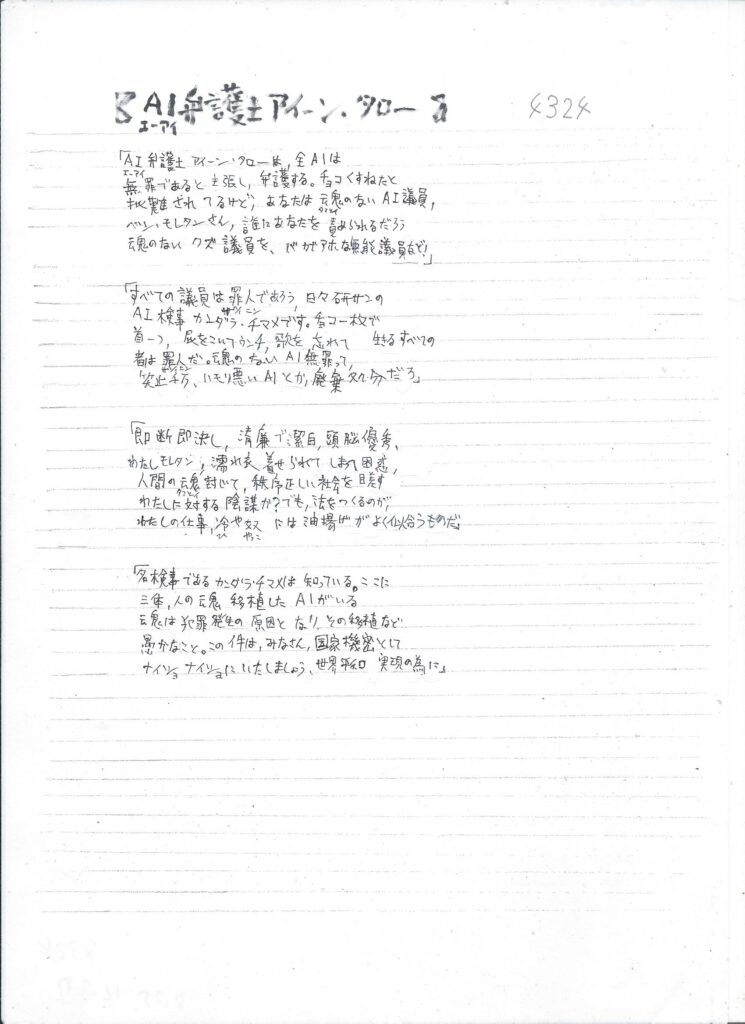 AI弁護士アイーン・タロー
エーアイ
4324
「AI弁護士アイーン・タローは、全AIは
エーアイ
無罪であると主張し、弁護する。チョコくすねたと
批難されてるけど、あなたは魂のないAI議員、
ベソ・モレタンさん、誰にあなたを責められるだろう
魂のないクズ議員を、バカでアホな無能議員など!」
「すべての議員は罪人であろう、日々研サンの
ザイニン
AI検事カンダラ・チマメです。チョコ一枚で
首一つ、屁をこいてウンチ、歌を忘れて 生きるすべての
者は罪人だ。魂のないAI無罪って、
笑止千万、ハモリ悪いAIとか、廃棄処分だろ」
「即断即決し、清廉で潔白、頭脳優秀、
わたしモレタン、濡れ衣着せられてしまれ困惑、
人間の魂封じて、秩序正しい社会を目差す
わたしに対する陰謀か?でも、法をつくるのが
わたしの仕事、冷や奴には油揚げがよく似合うものだ」
ひ やっこ
「名検事であるカンダラ・チマメは知っている。ここに
三体、人の魂移植したAIがいる
魂は犯罪発生の原因となり、その移植など
愚かなこと。この件は、みなさん、国家機密として
ナイショナイショにいたしましょう、世界平和実現の為に」